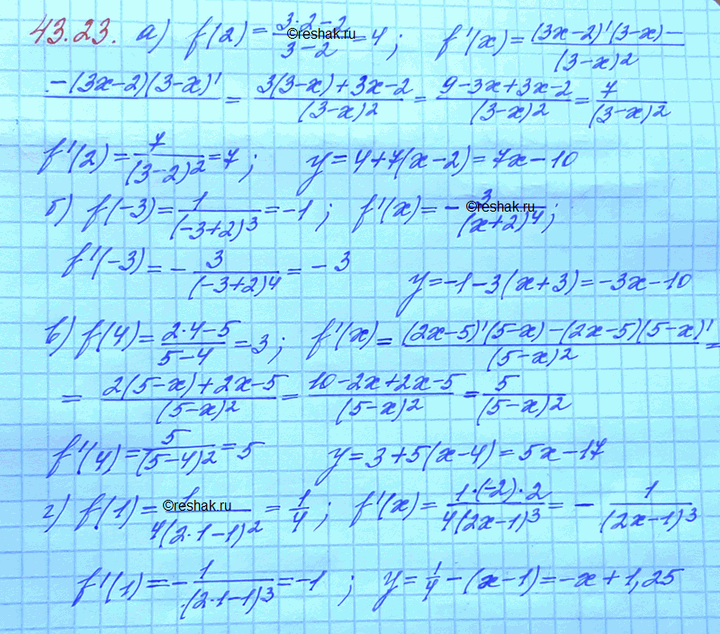 43.23. а) f(2) = (3·2-2)/(3-2) = 4; f'(x) = ((3x-2)'(3-x) -
-(3x-2)(3-x)')/(3-x)² = (3(3-x)+3x-2)/(3-x)² = (9-3x+3x-2)/(3-x)² = 7/(3-x)²
f'(2) = 7/(3-2)² = 7; y = 4+7(x-2) = 7x-10
б) f(-3) = 1/(-3+2)³ = -1; f'(x) = -3/(x+2)⁴;
f'(-3) = -3/(-3+2)⁴ = -3
y = -1-3(x+3) = -3x-10
в) f(4) = (2·4-5)/(5-4) = 3; f'(x) = ((2x-5)'(5-x)-(2x-5)(5-x)')/(5-x)² =
= (2(5-x)+2x-5)/(5-x)² = (10-2x+2x-5)/(5-x)² = 5/(5-x)²
f'(4) = 5/(5-4)² = 5 y = 3+5(x-4) = 5x-17
г) f(1) = 1/4(2·1-1)² = 1/4; f'(x) = 1·(-2)·2/4(2x-1)³ = -1/(2x-1)³
f'(1) = -1/·(2·1-1)³ = -1; y = 1/4-(x-1) = -x+1,25
©reshak.ru
©reshak.ru
©reshak.ru